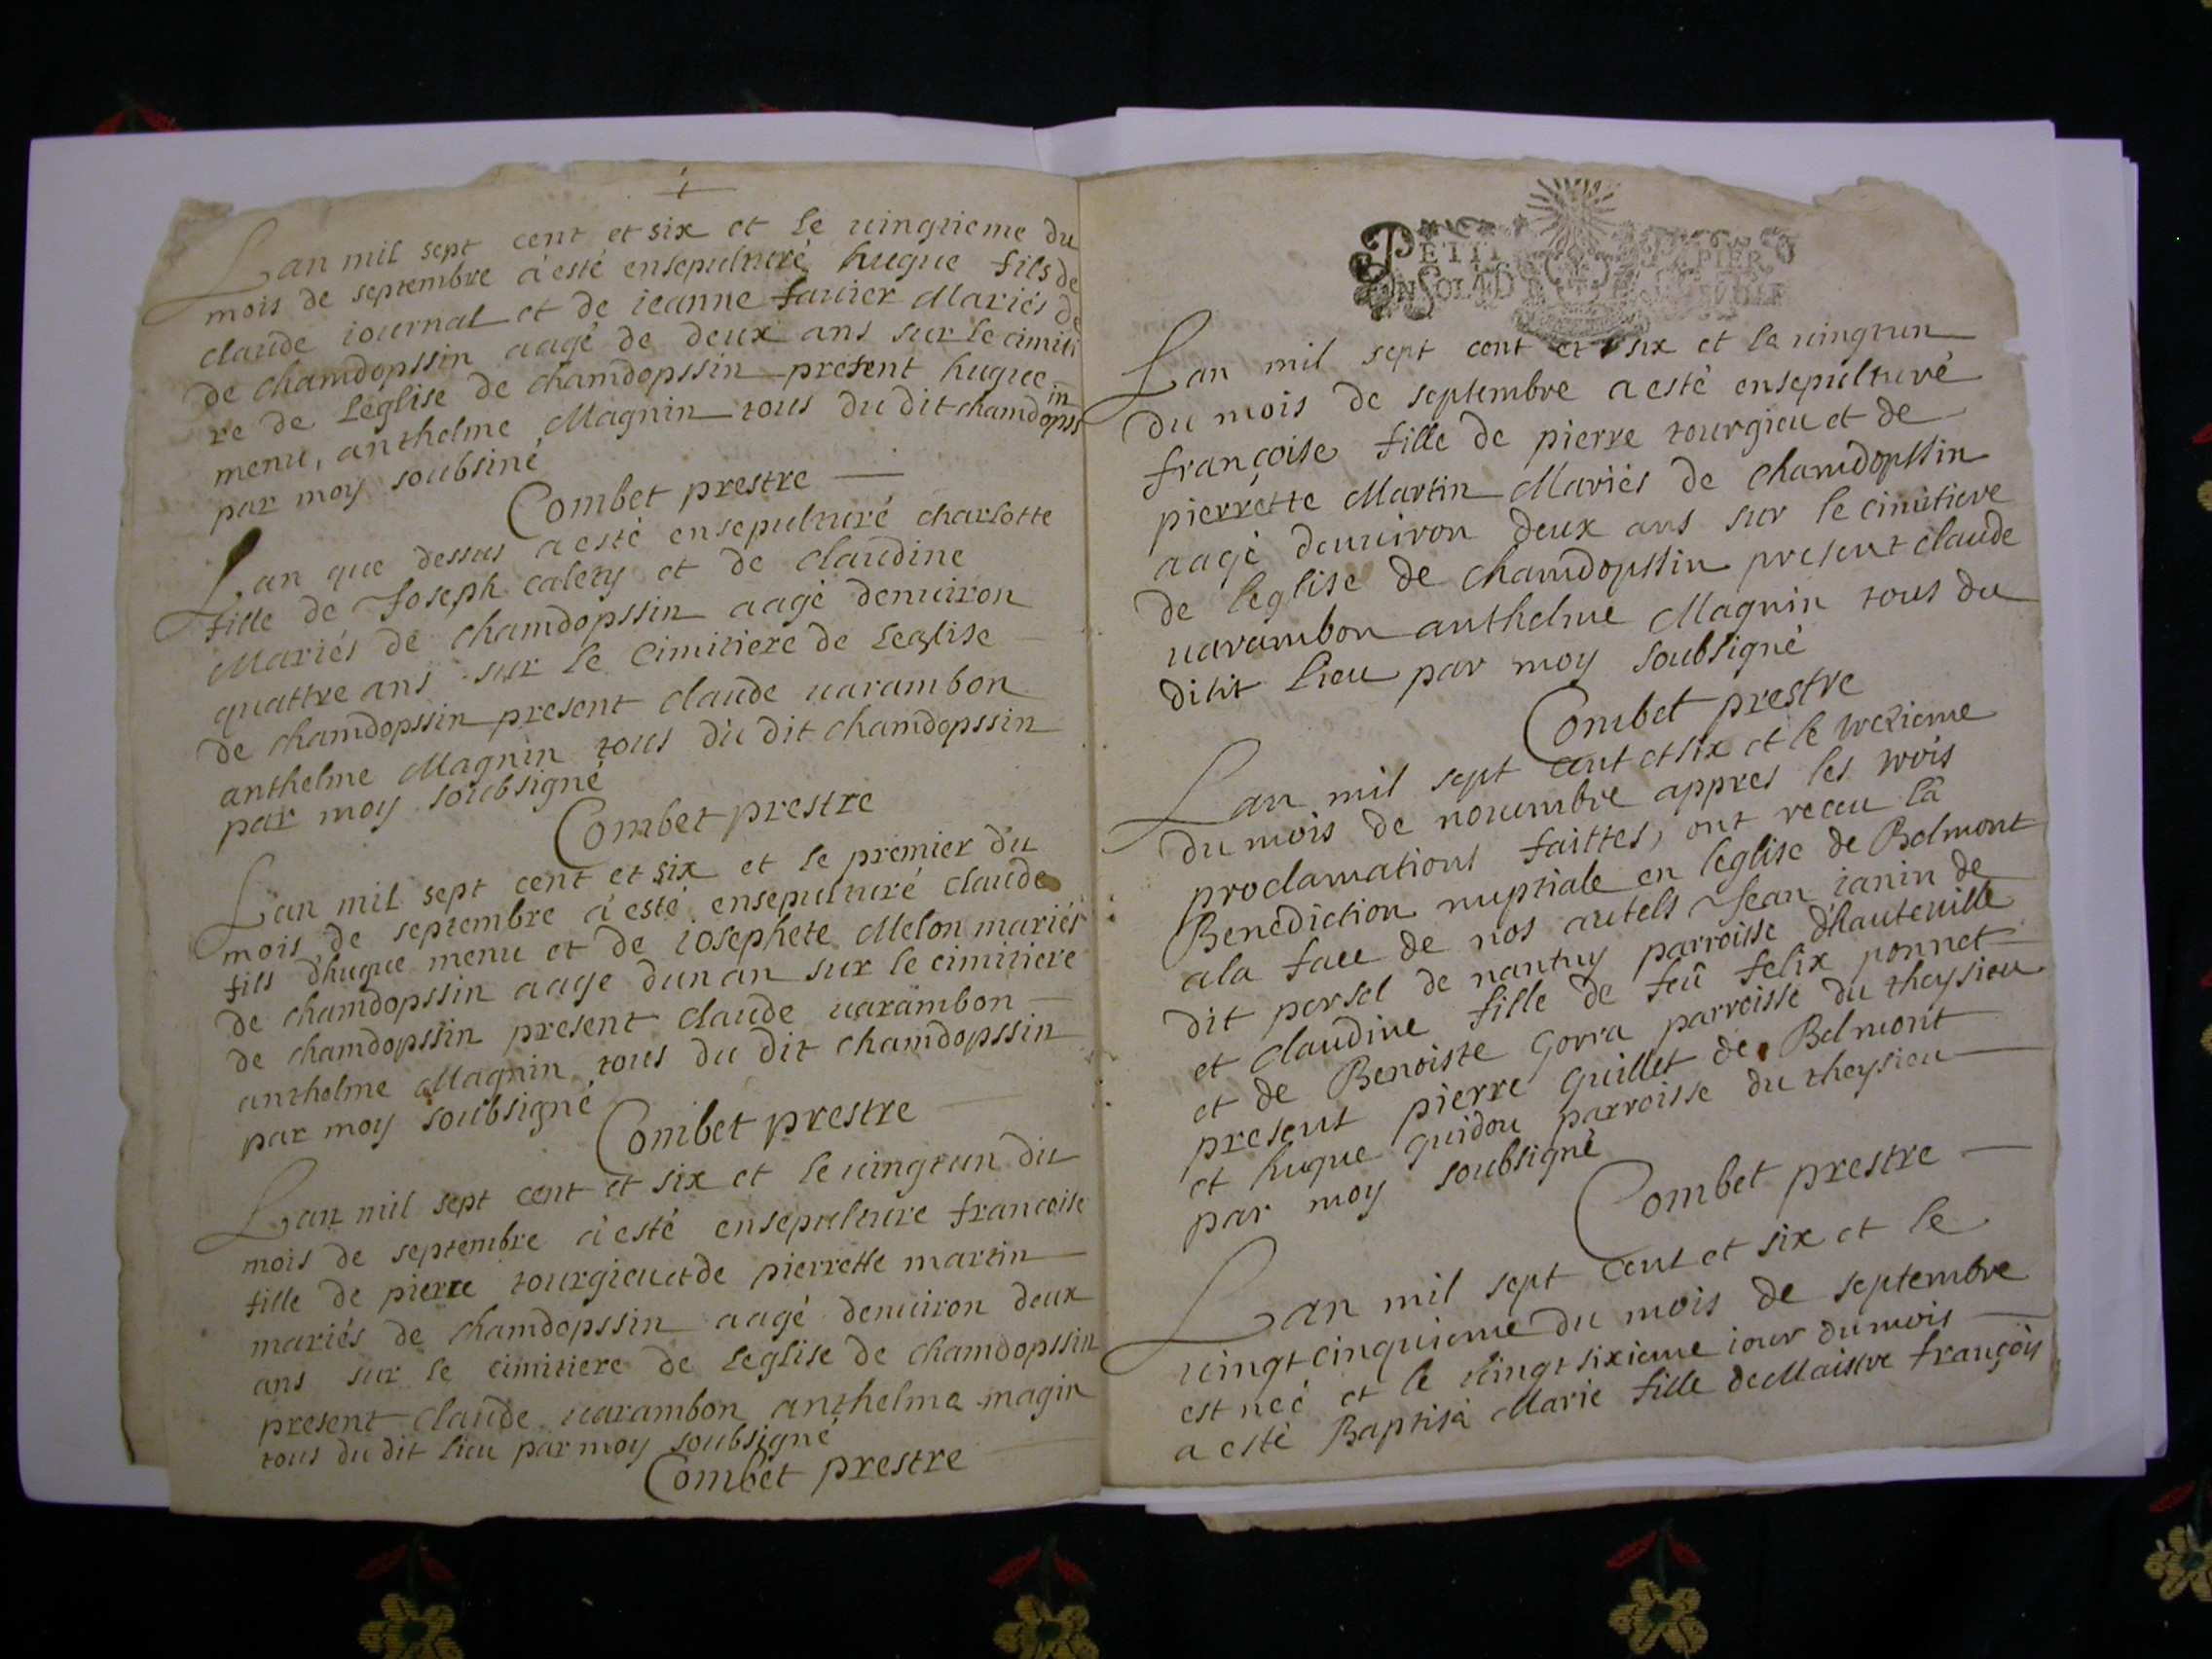 Lan mil sept cent et six et le uingtieme du
mois de septembre a esté ensepulturé hugue fils de
claude iournal et de ieanne fauier Mariés de
de chamdopssin aagé de deux ans sur le cimiti
re de Leglise de chamdopssin present hugue
menu, anthelme Magnin tous du dit chamdopssin
par moy soubsiné
Combet prestre
Lan que dessus a esté ensepulturé charlotte
fille de Joseph calery et de claudine
Mariés de chamdopssin aagé denuiron
quattre ans sur le Cimitiere de Leglise
de chamdopssin present claude uarambon
anthelme Magnin tous du dit chamdopssin
par moy soubsigné
Combet prestre
Lan mil sept cent et six et le premier du
mois de septembre a esté ensepulturé claude
fils dhugue menu et de iosephete Melon mariés
de chamdopssin aage dun an sur le cimitiere
de chamdopssin present claude uarambon
anthelme Magnin tous du dit chamdopssin
par moy soubsigné
Combet prestre
Lan mil sept cent et six et le uingt un du
mois de septembre a esté ensepulture francoise
fille de pierre tourgieu et de pierrette martin
mariés de chamdopssin aagé denuiron deux
ans sur le cimitiere de Leglise de chamdopssin
present claude uarambon anthelme magin
tous du dit lieu par moy soubsigné
Combet prestre
PETIT PAPIER
Lan mil sept cent et six et le uingt un
du mois de septembre a esté ensepulturé
françoise fille de pierre tourgieu et de
pierrette Martin Mariés de chamdopssin
aagé denuiron deux ans sur le cimitiere
de leglise de chamdopssin present claude
uarambon anthelme Magnin tous du
ditit lieu par moy soubsigné
Combet prestre
Lan mil sept cent et six et le trezieme
du mois de nouembre appres les trois
proclamations faittes, ont receu la
Benediction nuptiale en leglise de Belmont
a la face de nos autels Jean ianin de
dit porsel de nantuy parroisse dhauteuille
et claudine fille de feû felix ponnet
et de Benoiste gorra parroisse du theysieu
present pierre guillet de Belmont
et hugue guidou parroisse du theysieu
par moy soubsigné
Combet prestre
Lan mil sept cent et six et le
uingt cinquieme du mois de septembre
est neé et le uingt sixieme iour du mois
a esté Baptisà Marie fille de Maistre françois